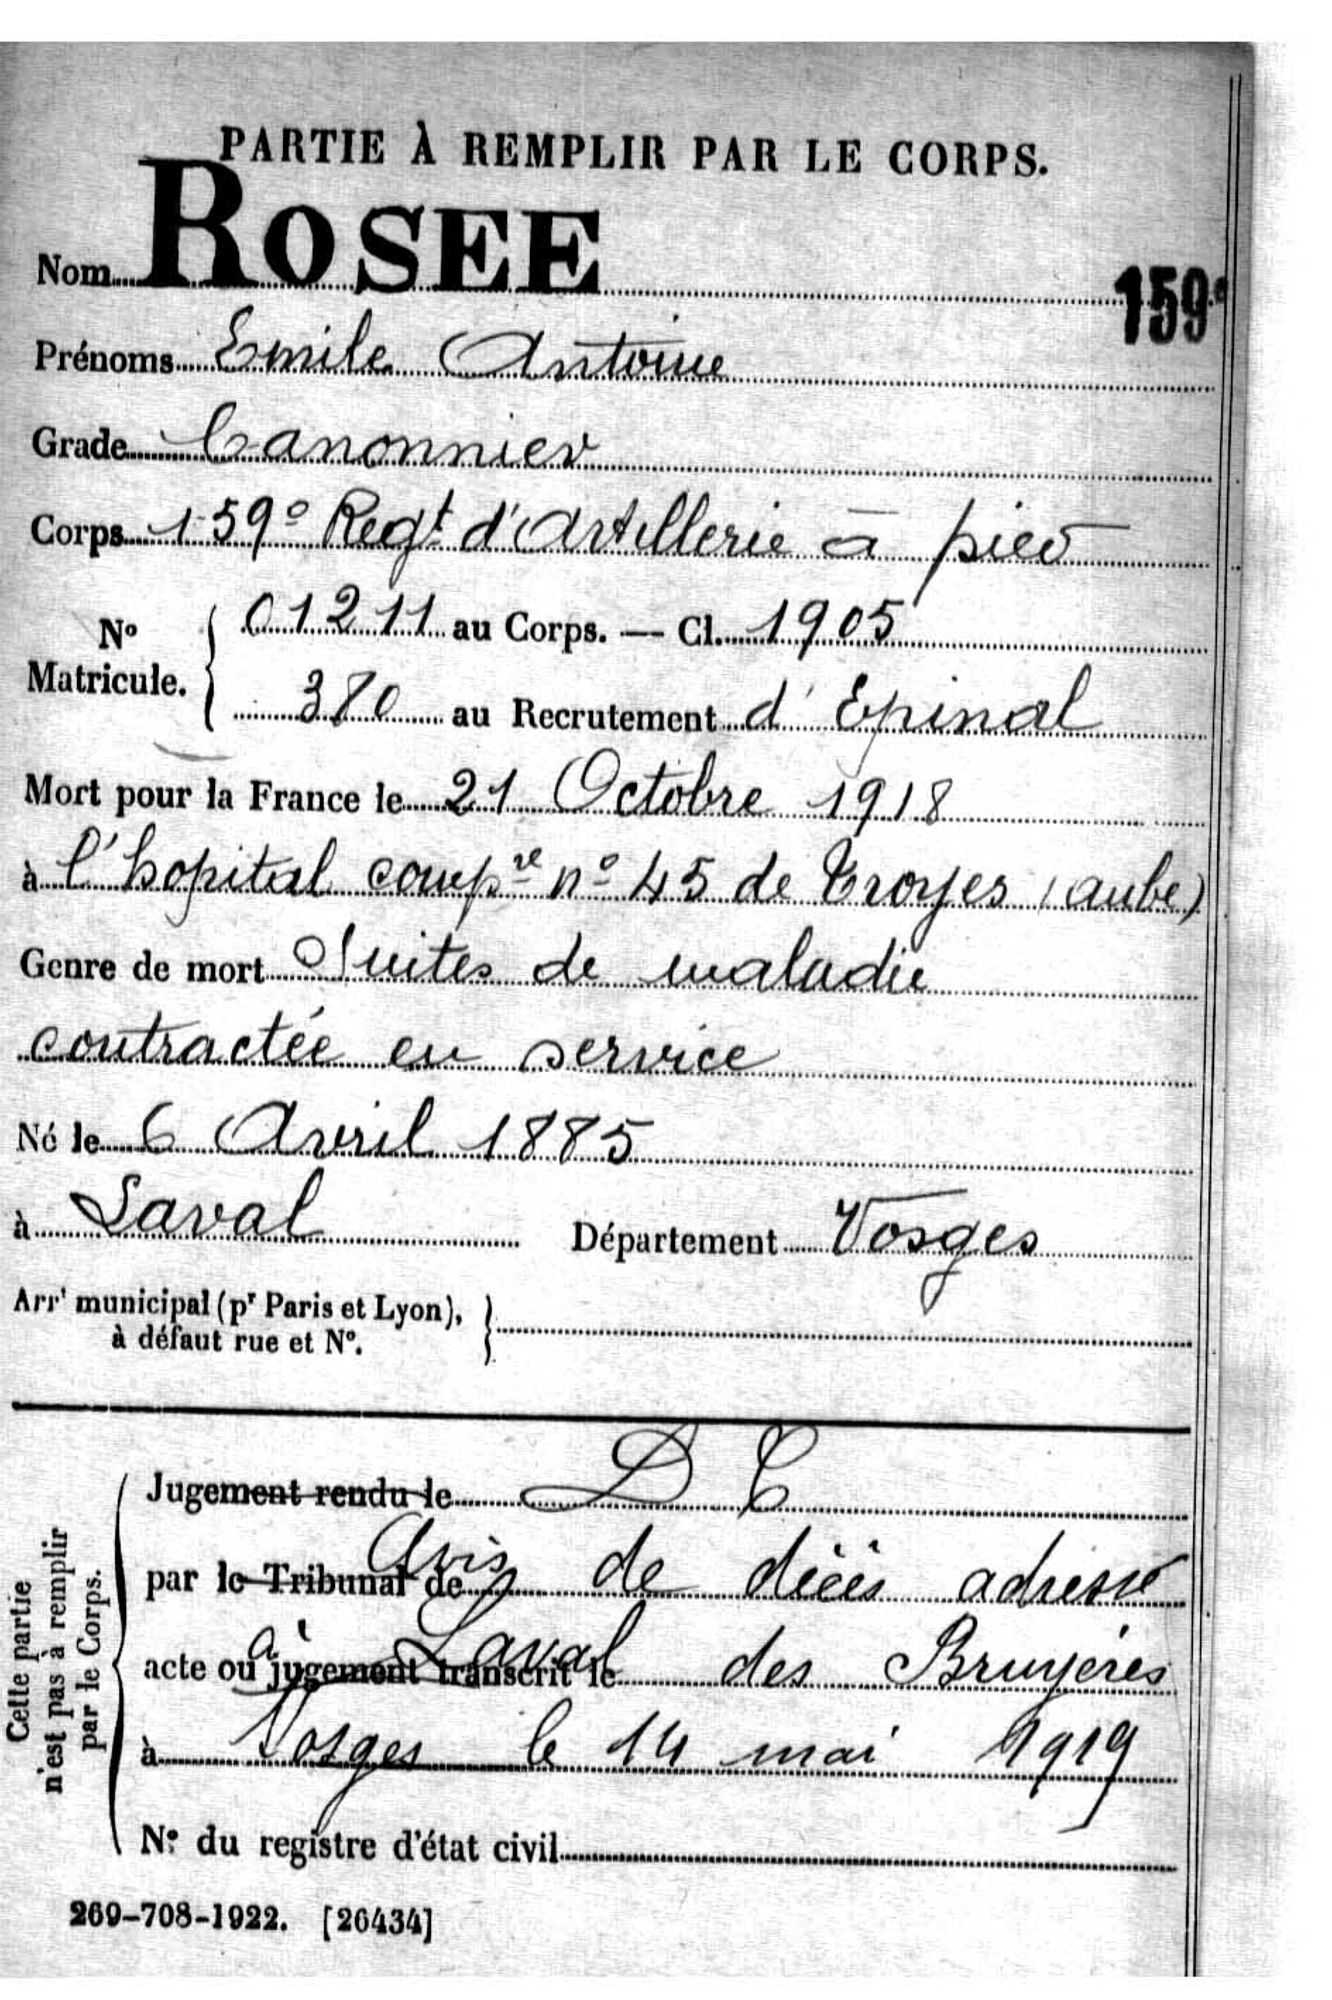 PARTIE À REMPLIR PAR LE CORPS.
Nom ROSEE
159e
Prénoms Emile Antoine
Grade Canonnier
Corps 159e Regt d'Artillerie à pied
No Matricule. { 01211 au Corps. — Cl. 1905
380 au Recrutement d'Epinal
Mort pour la France le 21 Octobre 1918
à l'hopital compre no 45 de Troyes (aube)
Genre de mort Suites de maladie
contractée en service
Né le 6 Avril 1885
à Laval Département Vosges
Arrt municipal (pr Paris et Lyon), }
à défaut rue et No.
Cette partie
n'est pas à remplir
par le Corps.
Jugement rendu le D C
par le Tribunal de Avis de décès adressé
acte ou jugement transcrit le à Laval des Bruyères
à Vosges le 14 mai 1919
No du registre d'état civil
269-708-1922. [26434]